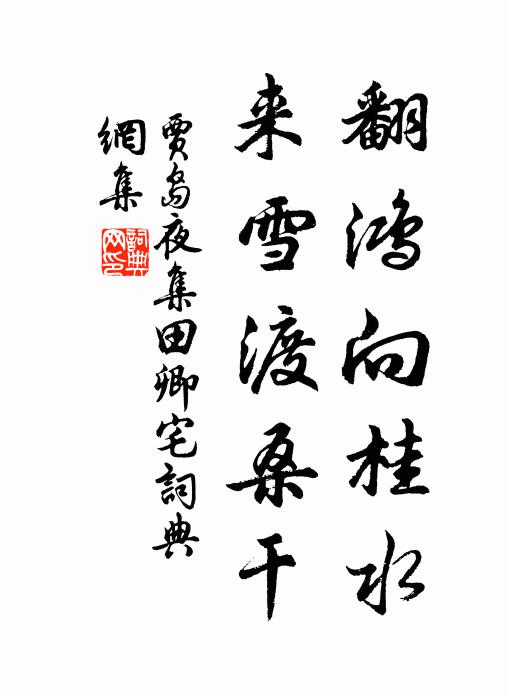 翻鸿向桂水
来雪渡桑干
賈島夜集田卿宅詞典
網集
詞典
网印